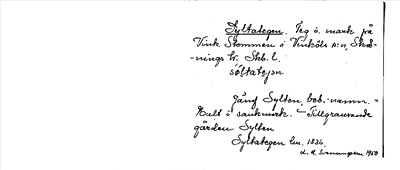 Syltategen. Teg ö. mark på
Vink. Stommen i Vinköls sn, Ska-
-nings hd. Skb. l.
sơltatejən
Jämf Sylten, beb.-namn. =
Kult i sankmark. Tillgränsande
gården Sylten
Syltategen lm. 1836.
1950